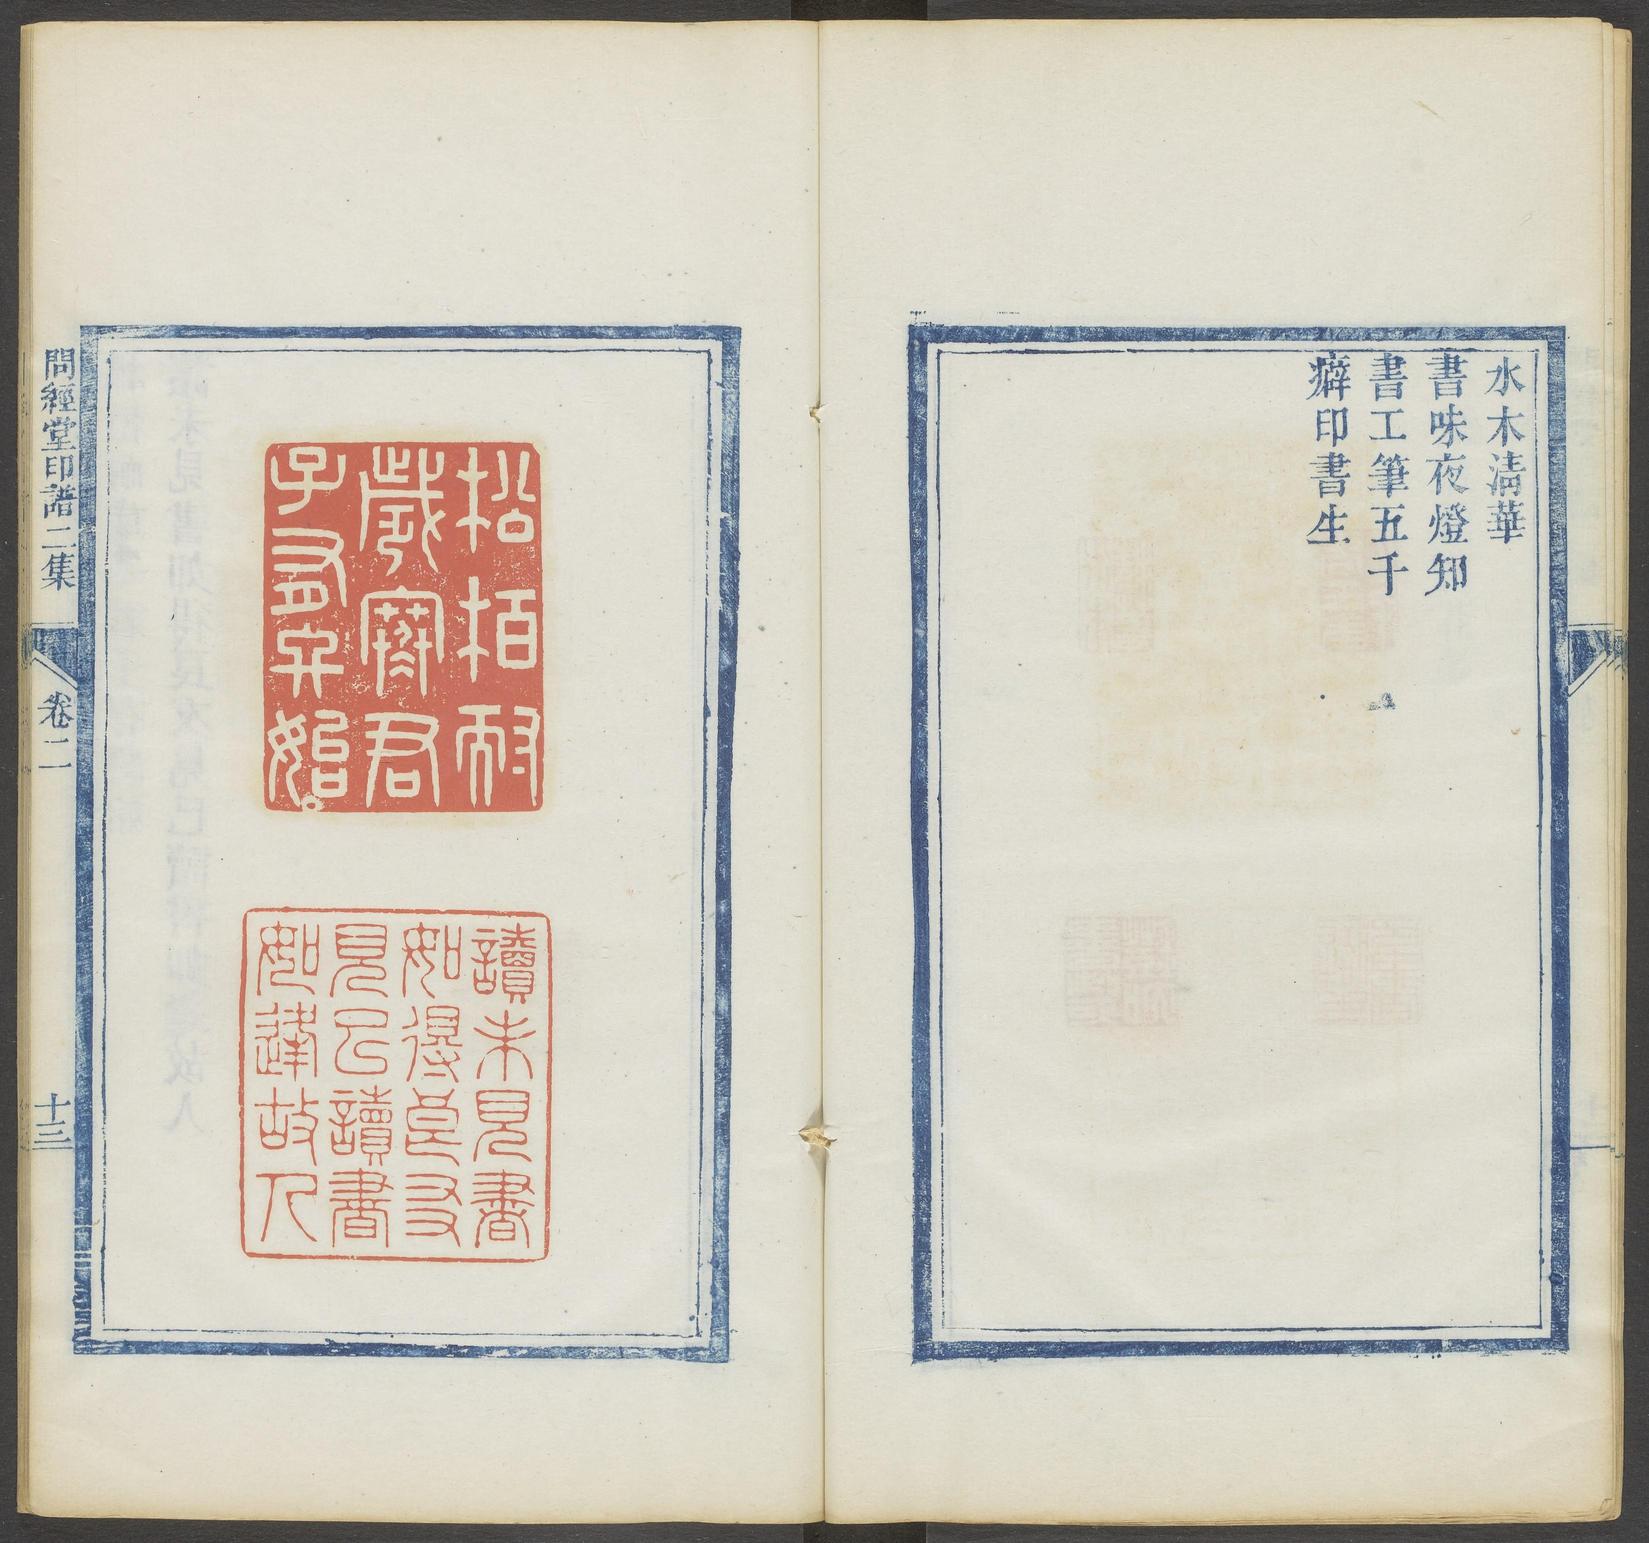 水木清華
書味夜燈知
書工筆五千
癖印書生
松柏耐
歲寒君
子有終始
讀未見書
如得良友
見已讀書
如逢故人
問經堂印譜二集
卷二
十三